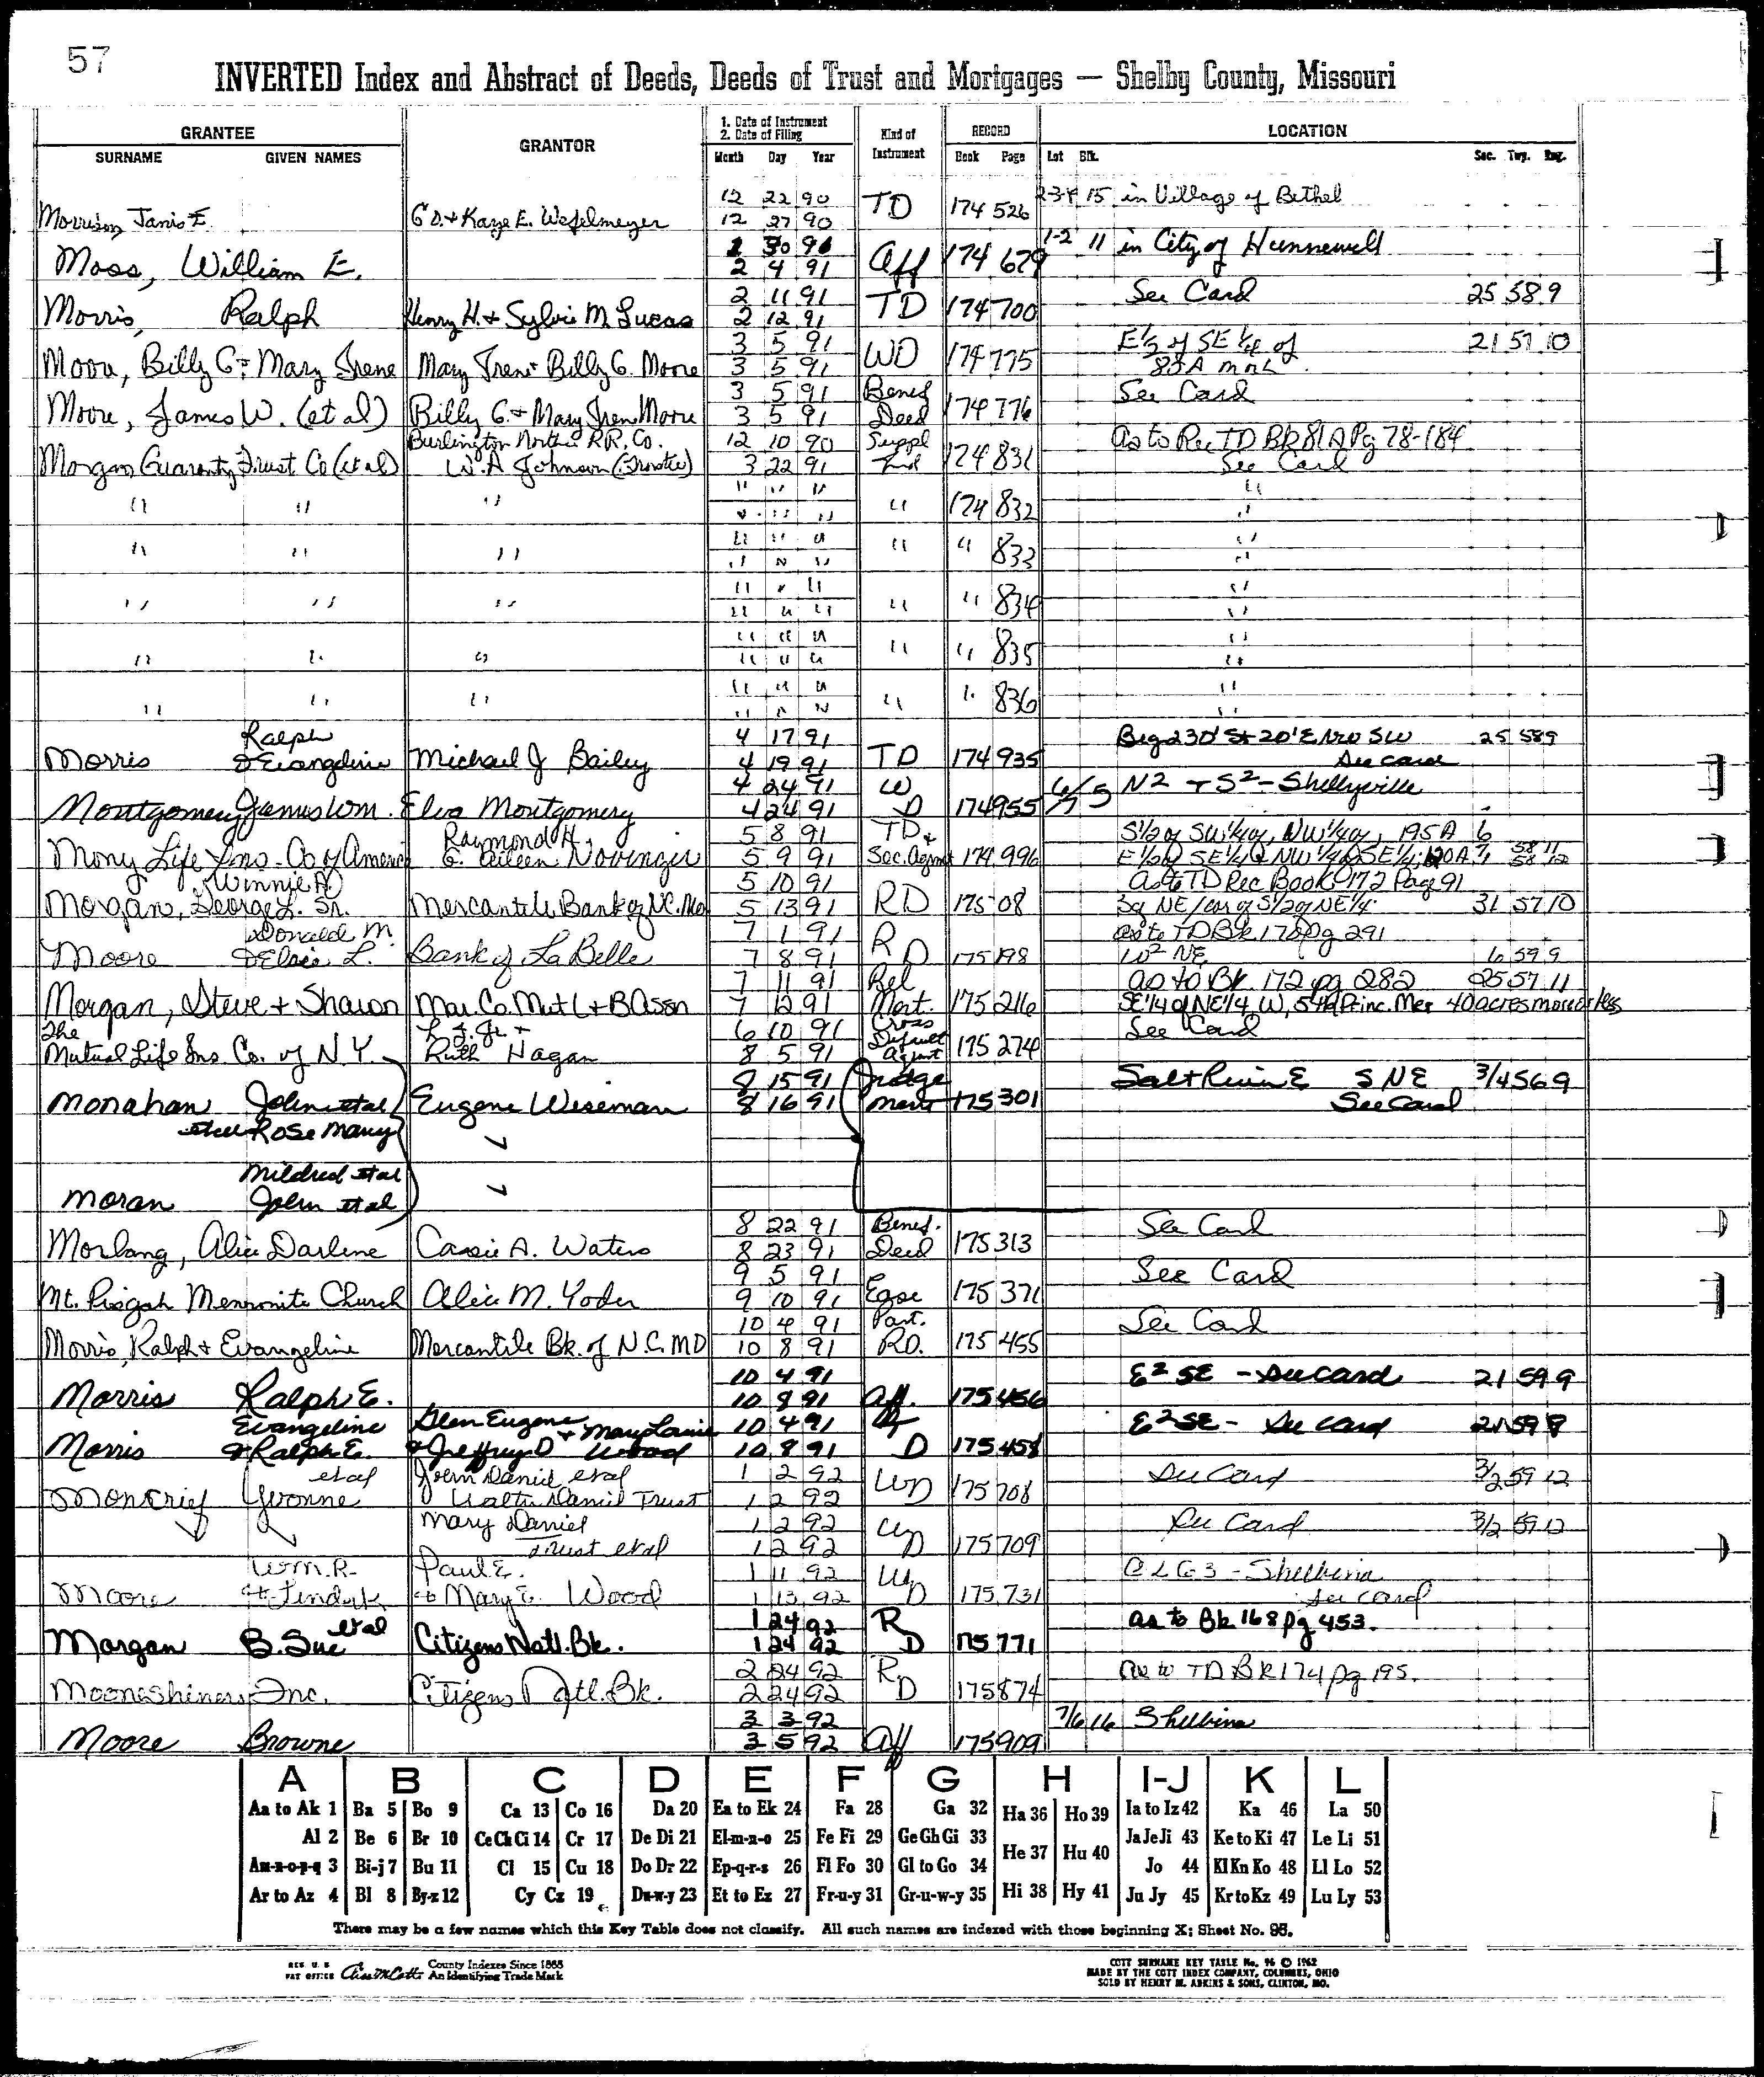 57
INVERTED Index and Abstract of Deeds, Deeds of Trust and Mortgages — Shelby County, Missouri
GRANTEE
SURNAME GIVEN NAMES
GRANTOR
1. Date of Instrument
2. Date of Filing
Month Day Year
Kind of Instrument
RECORD
Book Page
LOCATION
Lot Blk. Sec. Twp. Rng.
12 22 90 2-3-4 15 in Village of Bethel
Morrison Janis E. G D. + Kaye E. Wefelmeyer 12 27 90 TD 174 526
1 30 91 1-2 11 in City of Hunnewell
Moss, William E. 2 4 91 Aff 174 679
2 11 91 See Card 25 58 9
Morris, Ralph Henry H. + Sylvia M. Lucas 2 12 91 TD 174 700
3 5 91 E½ of SE ¼ of 21 57 10
Moore, Billy G + Mary Irene Mary Irene + Billy G. Moore 3 5 91 WD 174 775 83A mnL
3 5 91 Benef See Card
Moore, James W. (et al) Billy G. + Mary Iren Moore 3 5 91 Deed 174 776
Burlington Northn R.R. Co. 12 10 90 Suppl As to Rec TD BK 81A Pg 78-184
Morgan Guaranty Trust Co (et al) W.A Johnson (Trustee) 3 22 91 Ind 174 831 See Card
" " " " " " " 174 832 "
" " " " " " " " 833 "
" " " " " " " " 834 "
" " " " " " " " 835 "
" " " " " " " " 836 "
Ralph 4 17 91 Beg 230' S + 20' E NW SW 25 58 9
Morris & Evangeline Michael J Bailey 4 19 91 TD 174 935 See card
4 24 91 W 6/7 5 N2 + S2 - Shelbyville
Montgomery James Wm. Elva Montgomery 4 24 91 D 174 955
Raymond H. 5 8 91 TD + S1/2 of SW1/4 of, NW1/4 of, 195A 6 58 11
Mony Life Ins. Co of America C. Aileen Novinger 5 9 91 Sec. Agmt 174 996 E1/2 of SE1/4 & NW1/4 of SE1/4; 120A 1 58 12
Winnie A. 5 10 91 As to TD Rec Book 172 Page 91
Morgan, George L. Sr. Mercantile Bank of N.C. Mo 5 13 91 RD 175 08 Sq NE/cor of S1/2 of NE1/4 31 57 10
Donald M. 7 1 91 R as to TD Bk 170 pg 291
Moore & Elsie L. Bank of La Belle 7 8 91 D 175 198 W2 NE 6 59 9
7 11 91 Rel as to Bk 172 pg 282 25 57 11
Morgan, Steve + Sharon Mar. Co. Mut L + B Assn 7 12 91 Mort. 175 216 SE1/4 of NE1/4, W, 5th Princ. Mer 40 acres more or less
The L. J. Jr. + 6 10 91 Cross Default See Card
Mutual Life Ins. Co. of N.Y. Ruth Hagan 8 5 91 Agmt 175 274
8 15 91 Judge Salt River E S NE 3/4 56 9
Monahan John et al Eugene Wiseman 8 16 91 ment 175 301 See Card
et al Rose Mary
Mildred et al
Moran John et al
8 22 91 Benef. See Card
Morlang, Alice Darlene Cassie A. Waters 8 23 91 Deed 175 313
9 5 91 See Card
Mt. Pisgah Mennonite Church Alice M. Yoder 9 10 91 Ease 175 371
10 4 91 Part. See Card
Morris, Ralph + Evangeline Mercantile Bk. of N.C. MO 10 8 91 RD. 175 455
10 4 91 E2 SE - See card 21 59 9
Morris Ralph E. 10 8 91 Aff. 175 456
Evangeline Glen Eugene + Mary Lanie 10 4 91 E2 SE - See card 21 59 9
Morris & Ralph E. & Jeffrey D Wood 10 8 91 D 175 458
et al John Daniel et al 1 2 92 See Card 3/2 59 12
Moncrief Yvonne Walter Daniel Trust 1 2 92 WD 175 708
Mary Daniel 1 2 92 See Card 3/2 59 12
Trust et al 1 2 92 WD 175 709
Wm. R. Paul E. 1 11 92 W Shelbina
Moore & Mary E. Wood 1 13 92 D 175 731 See card
et al 1 24 92 R as to Bk 168 pg 453.
Morgan B. Sue Citizens Natl. Bk. 1 24 92 D 175 771
2 24 92 R as to TD BK 174 pg 195.
Moonashiners Inc. Citizens Natl. Bk. 2 24 92 D 175 874
3 3 92 7/6 16 Shelbina
Moore Browne 3 5 92 Aff 175 909
A B C D E F G H I-J K L
Aa to Ak 1 Ba 5 Bo 9 Ca 13 Co 16 Da 20 Ea to Ek 24 Fa 28 Ga 32 Ha 36 Ho 39 Ia to Iz 42 Ka 46 La 50
Al 2 Be 6 Br 10 Ce Ch Ci 14 Cr 17 De Di 21 El-m-n-o 25 Fe Fi 29 Ge Gh Gi 33 He 37 Hu 40 Ja Je Ji 43 Ke to Ki 47 Le Li 51
An-n-o-p-q 3 Bi-j 7 Bu 11 Cl 15 Cu 18 Do Dr 22 Ep-q-r-s 26 Fl Fo 30 Gl to Go 34 Jo 44 Kl Kn Ko 48 Ll Lo 52
Ar to Az 4 Bl 8 By-z 12 Cy Cz 19 Du-w-y 23 Et to Ez 27 Fr-u-y 31 Gr-u-w-y 35 Hi 38 Hy 41 Ju Jy 45 Kr to Kz 49 Lu Ly 53
There may be a few names which this Key Table does not classify. All such names are indexed with those beginning X; Sheet No. 95.
REG. U. S. PAT OFFICE County Indexes Since 1888 An Identifying Trade Mark
COTT SURNAME KEY TABLE No. 96 © 1962
MADE BY THE COTT INDEX COMPANY, COLUMBUS, OHIO
SOLD BY HENRY M. ADKINS & SONS, CLINTON, MO.